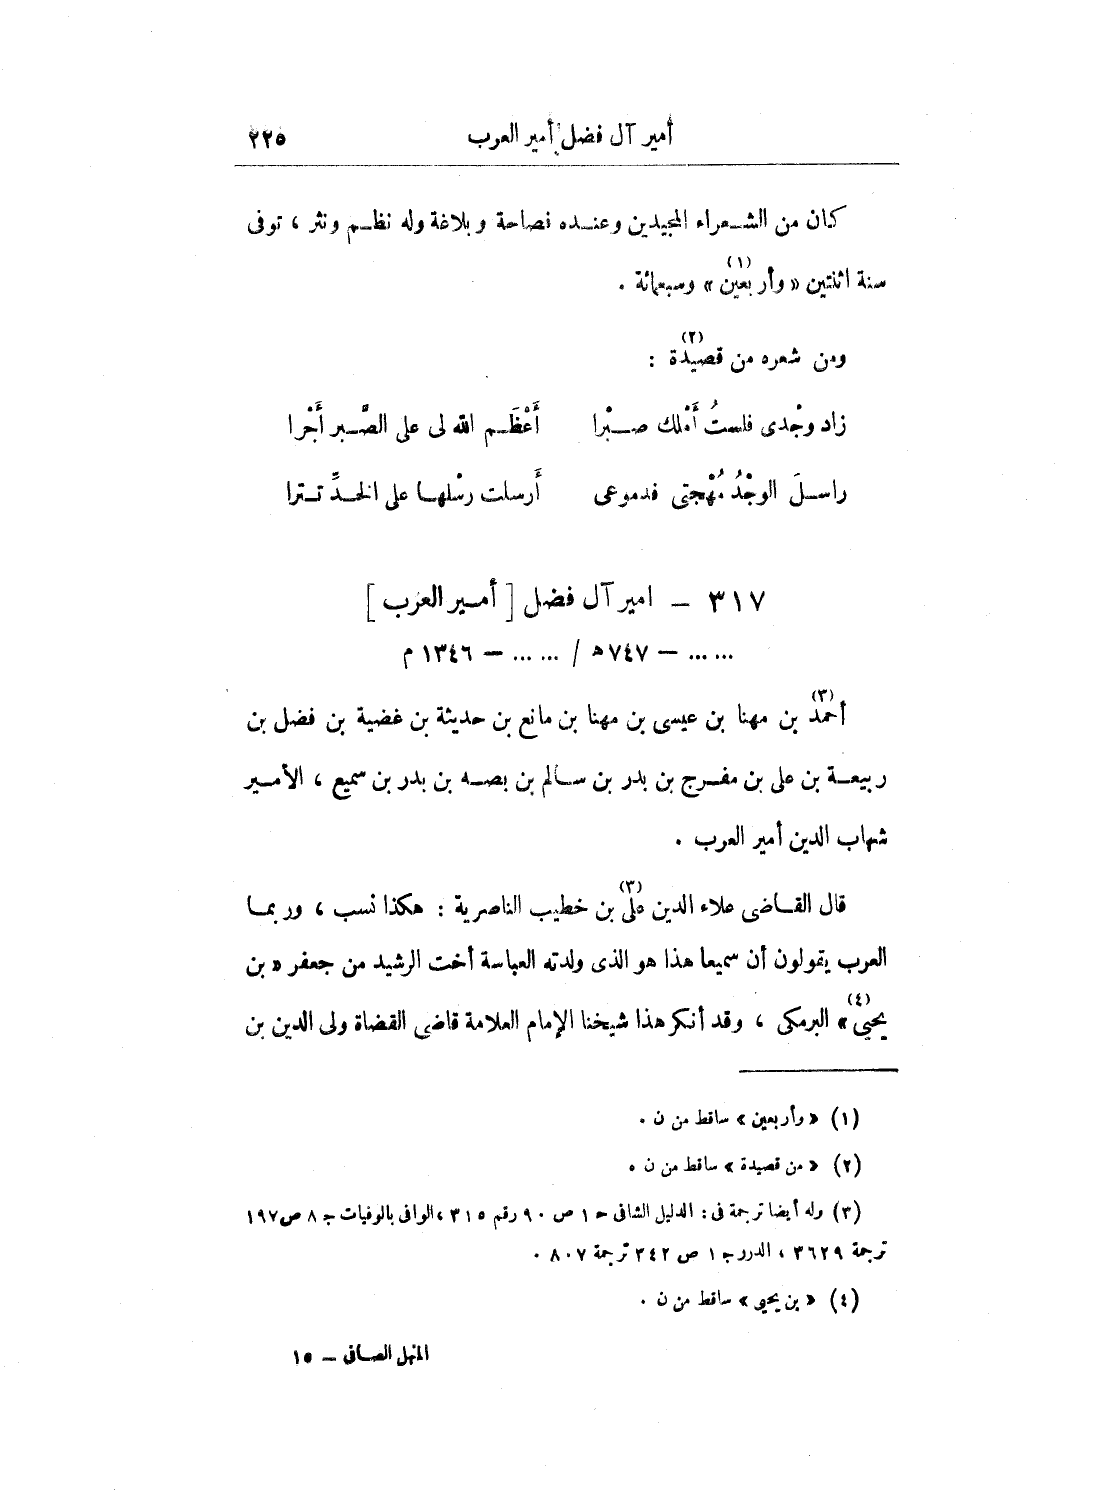 أمير آل فضل أمير العرب ٢٢٥
كان من الشعراء المجيدين وعنده فصاحة وبلاغة وله نظم ونثر ، توفى
سنة اثنتين « وأربعين (١) » وسبعمائة .
ومن شعره من قصيدة (٢) :
زاد وجْدى فلستُ أَمْلك صبْرا أَعْظَم الله لى على الصَّبر أَجْرا
راسلَ الوجْدُ مُهْجتى فدموعى أَرسلت رسْلها على الخدِّ تترا
٣١٧ – امير آل فضل [ أمير العرب ]
... ... – ٧٤٧ هـ / ... ... – ١٣٤٦ م
أحمد (٣) بن مهنا بن عيسى بن مهنا بن مانع بن حديثة بن غضية بن فضل بن
ربيعة بن على بن مفرج بن بدر بن سالم بن بصه بن بدر بن سميع ، الأمير
شهاب الدين أمير العرب .
قال القاضى علاء الدين على (٣) بن خطيب الناصرية : هكذا نسب ، وربما
العرب يقولون أن سميعا هذا هو الذى ولدته العباسة أخت الرشيد من جعفر « بن
يحيى (٤) » البرمكى ، وقد أنكر هذا شيخنا الإمام العلامة قاضى القضاة ولى الدين بن
(١) « وأربعين » ساقط من ن .
(٢) « من قصيدة » ساقط من ن .
(٣) وله أيضا ترجمة فى : الدليل الشافى ج ١ ص ٩٠ رقم ٣١٥ ، الوافى بالوفيات ج ٨ ص ١٩٧
ترجمة ٣٦٢٩ ، الدرر ج ١ ص ٣٤٢ ترجمة ٨٠٧ .
(٤) « بن يحيى » ساقط من ن .
المنهل الصافى – ١٥